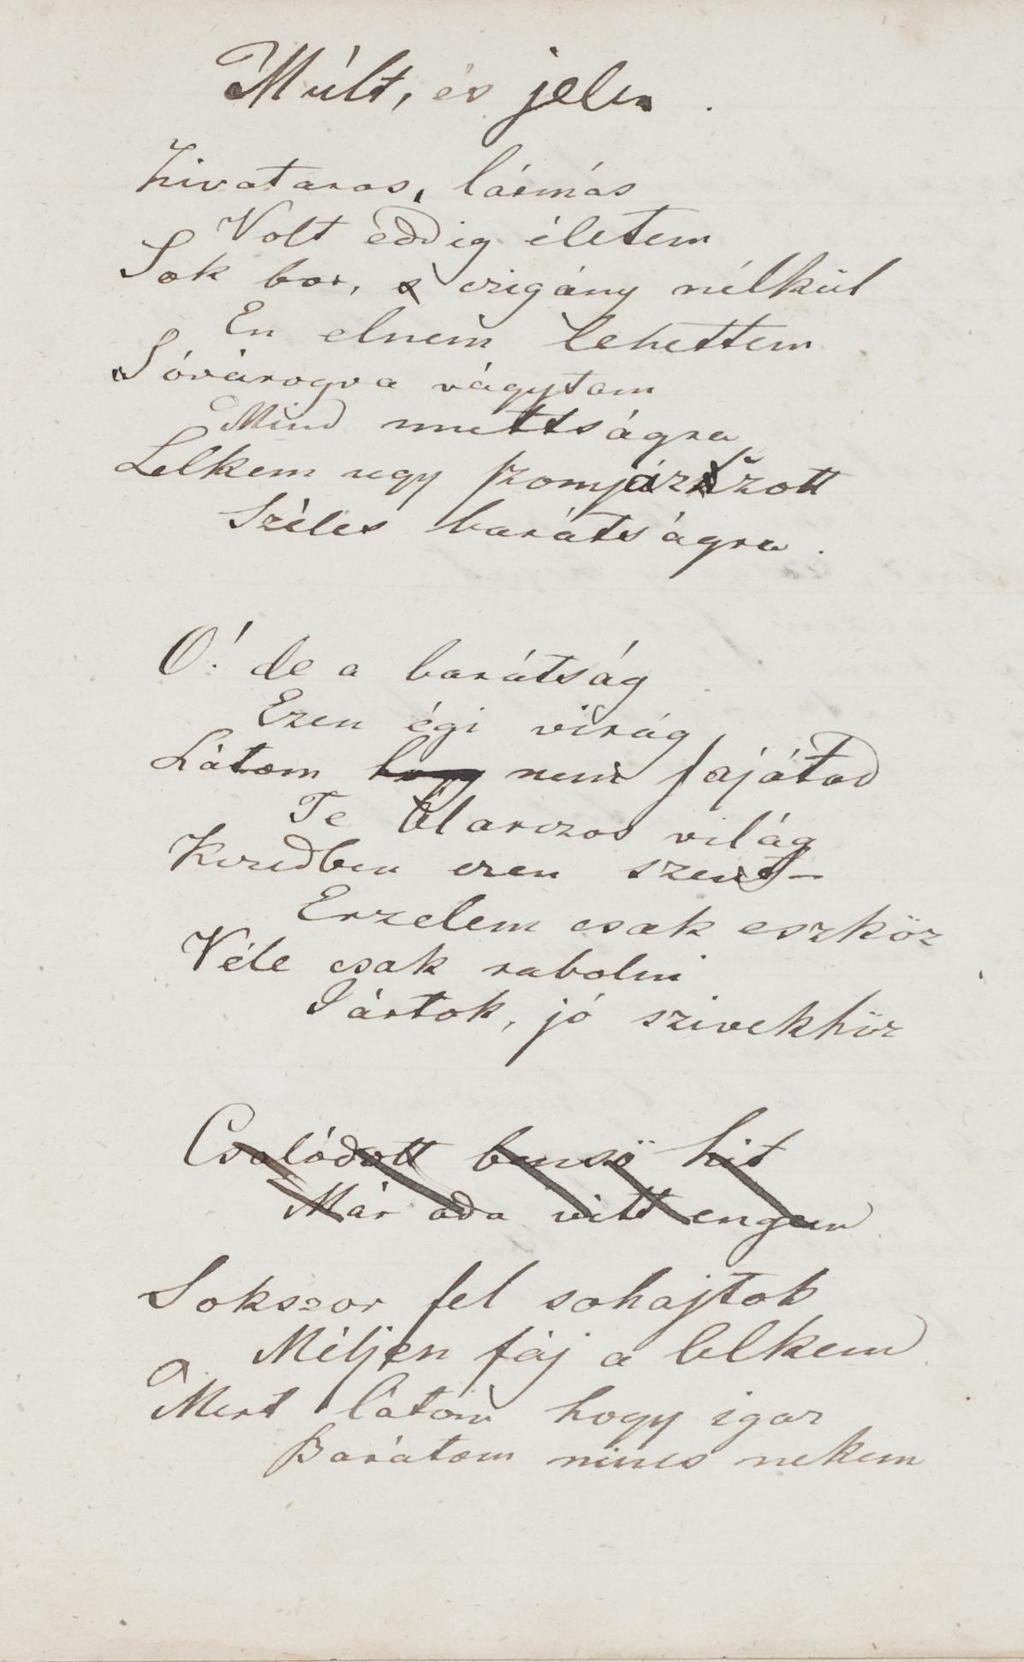 Múlt, és jelen.
Zivataros, lármás
Volt eddig életem
Sok bor, s czigány nélkül
En elnem lehettem
Sóvárogva vágytam
Mind multtságra
Lelkem ugy szomjúzott
Széles barátságra.
O! de a barátság
Ezen égi virág
Látom hogy nem sajátod
Te álarczos világ
Kezedben ezen szent
Erzelem csak eszköz
Véle csak rabolni
Jártok, jó szivekhöz
Csalódott benső hit
Már oda vitt engem
Sokszor fel sohajtok
Miljen fáj a lelkem
Mert látom hogy igaz
Barátom nincs nekem